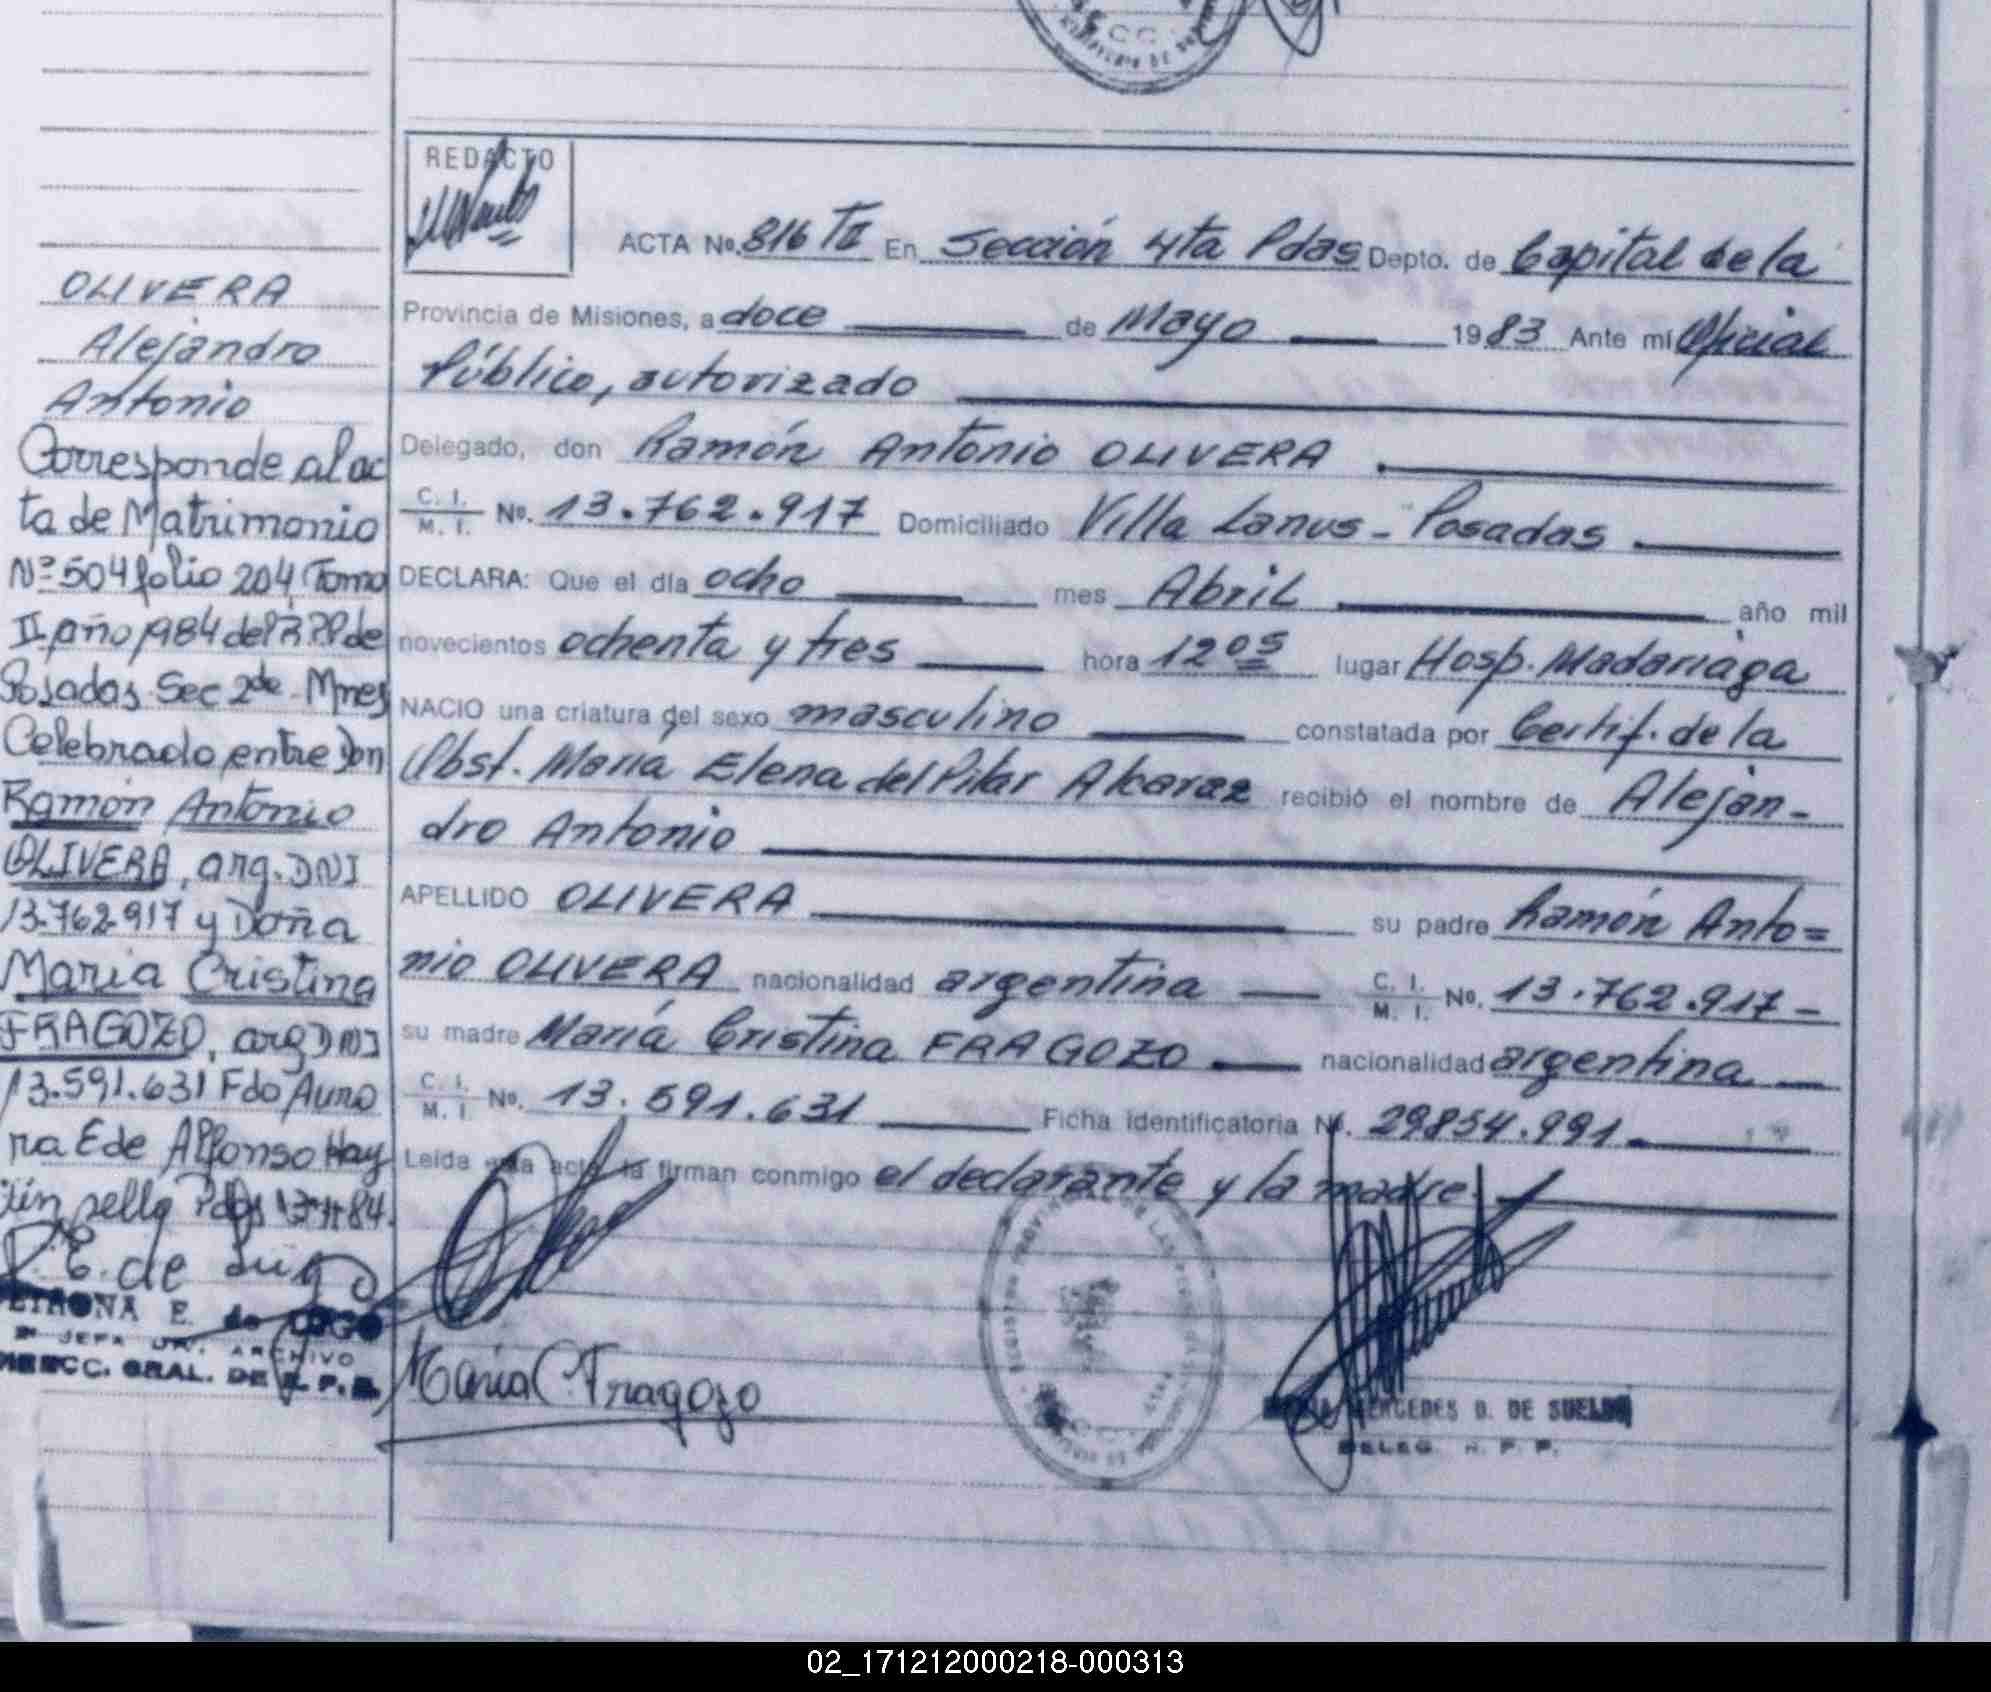 REDACTO
ACTA No. 816 TII En Sección 4ta Pdas Depto. de Capital de la
Provincia de Misiones, a doce de Mayo 1983 Ante mí Oficial
Público, autorizado
Delegado, don Ramón Antonio OLIVERA
C. I. / M. I. No. 13.762.917 Domiciliado Villa Lanus - Posadas
DECLARA: Que el día ocho mes Abril año mil
novecientos ochenta y tres hora 12 05 lugar Hosp. Madariaga
NACIO una criatura del sexo masculino constatada por Certif. de la
Obst. María Elena del Pilar Alcaraz recibió el nombre de Alejan-
dro Antonio
APELLIDO OLIVERA su padre Ramón Anto=
nio OLIVERA nacionalidad argentina C. I. / M. I. No. 13.762.917-
su madre María Cristina FRAGOZO nacionalidad argentina
C. I. / M. I. No. 13.591.631 Ficha identificatoria No. 29854.991.
Leída esta acta la firman conmigo el declarante y la madre.
María C. Fragozo
MERCEDES D. DE SUELDO
DELEG. R. P. P.
OLIVERA
Alejandro
Antonio
Corresponde al ac
ta de Matrimonio
Nº 504 folio 204 Tomo
II año 1984 del R.P.P. de
Posadas Sec 2da Mnes
Celebrado entre Don
Ramón Antonio
OLIVERA, arg. DNI
13.762.917 y Doña
Maria Cristina
FRAGOZO, arg DNI
13.591.631 Fdo Auro
ra E de Alfonso Hay
un sello Pdas
P. E. de Lugo
PETRONA E. de LUGO
JEFA DIV. ARCHIVO
DIRECC. GRAL. DE R. P. P.
02_171212000218-000313